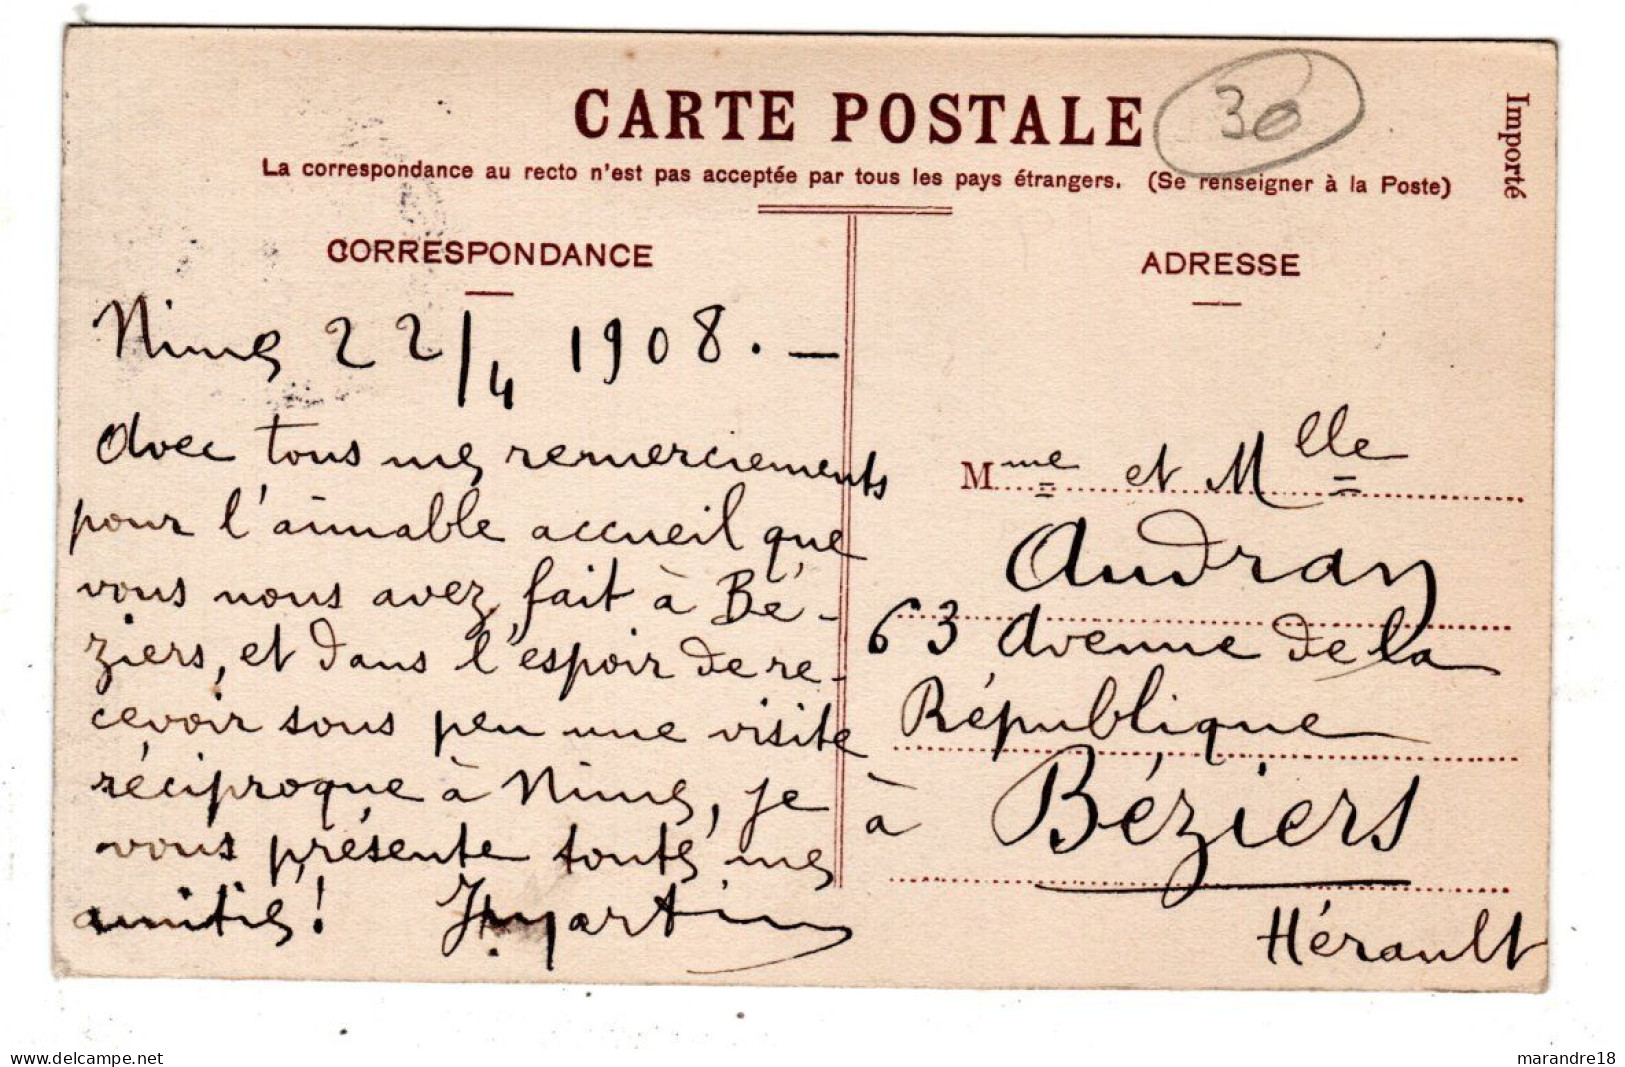 CARTE POSTALE
30
Importé
La correspondance au recto n'est pas acceptée par tous les pays étrangers. (Se renseigner à la Poste)
CORRESPONDANCE
Nimes 22/4 1908. —
Avec tous mes remerciements
pour l'aimable accueil que
vous nous avez fait à Bé-
ziers, et dans l'espoir de re-
cevoir sous peu une visite
réciproque à Nimes, je
vous présente toutes mes
amitiés! J. Martin
ADRESSE
Mme et Mlle
Audran
63 Avenue de la
République
à Béziers
Hérault
www.delcampe.net
marandre18